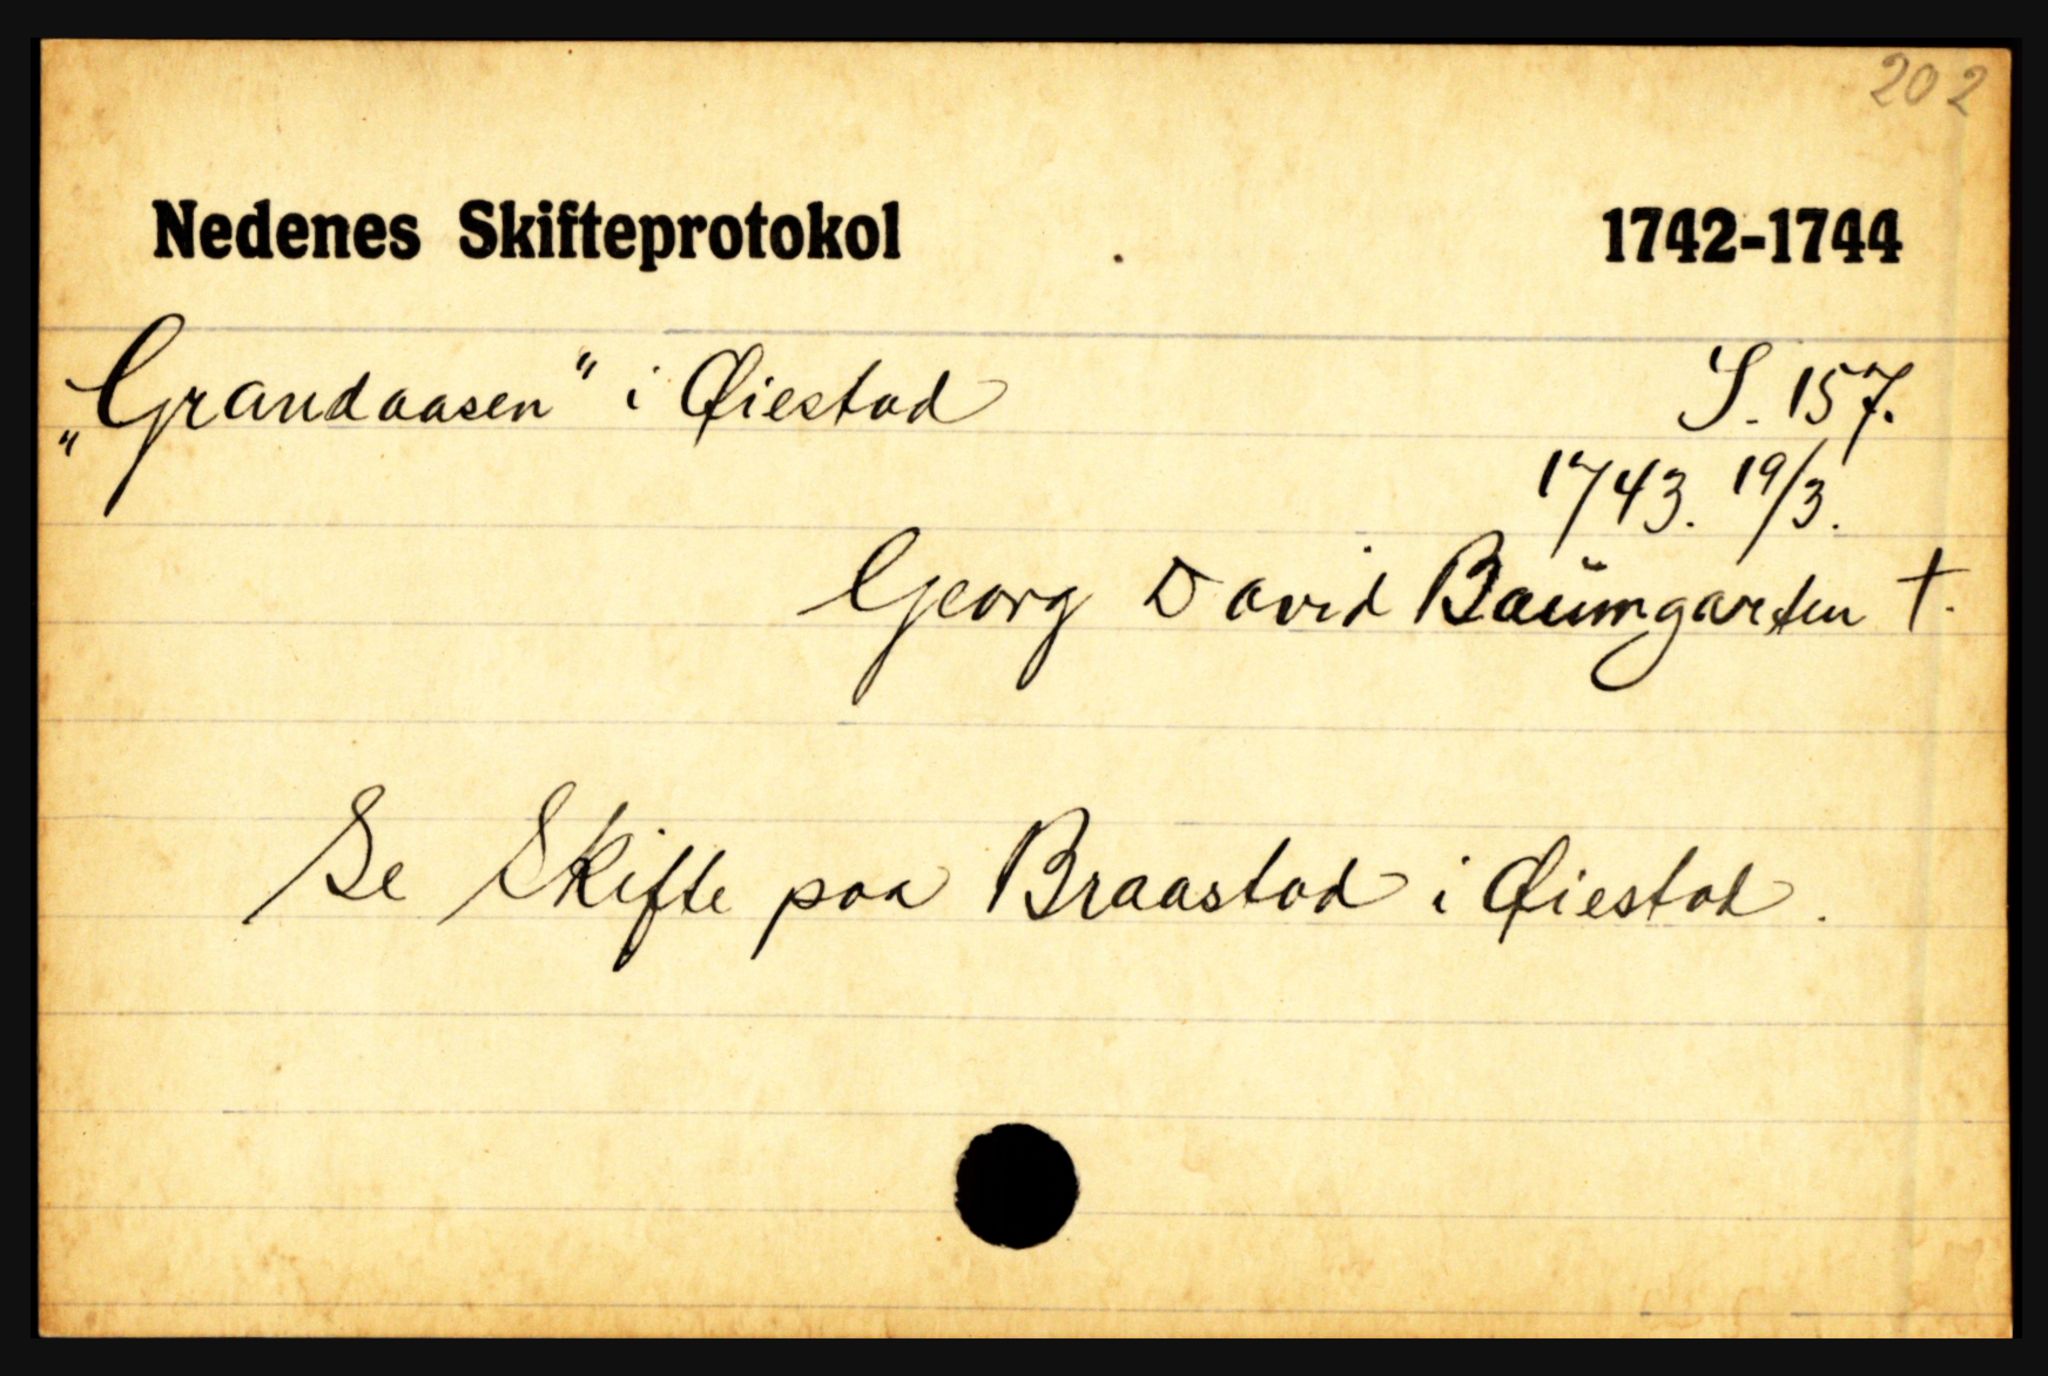 202
Nedenes Skifteprotokol 1742-1744
„Grandaasen" i Øiestad S. 157.
1743. 19/3.
Georg David Baümgarten †.
Se Skifte paa Braastad i Øiestad.